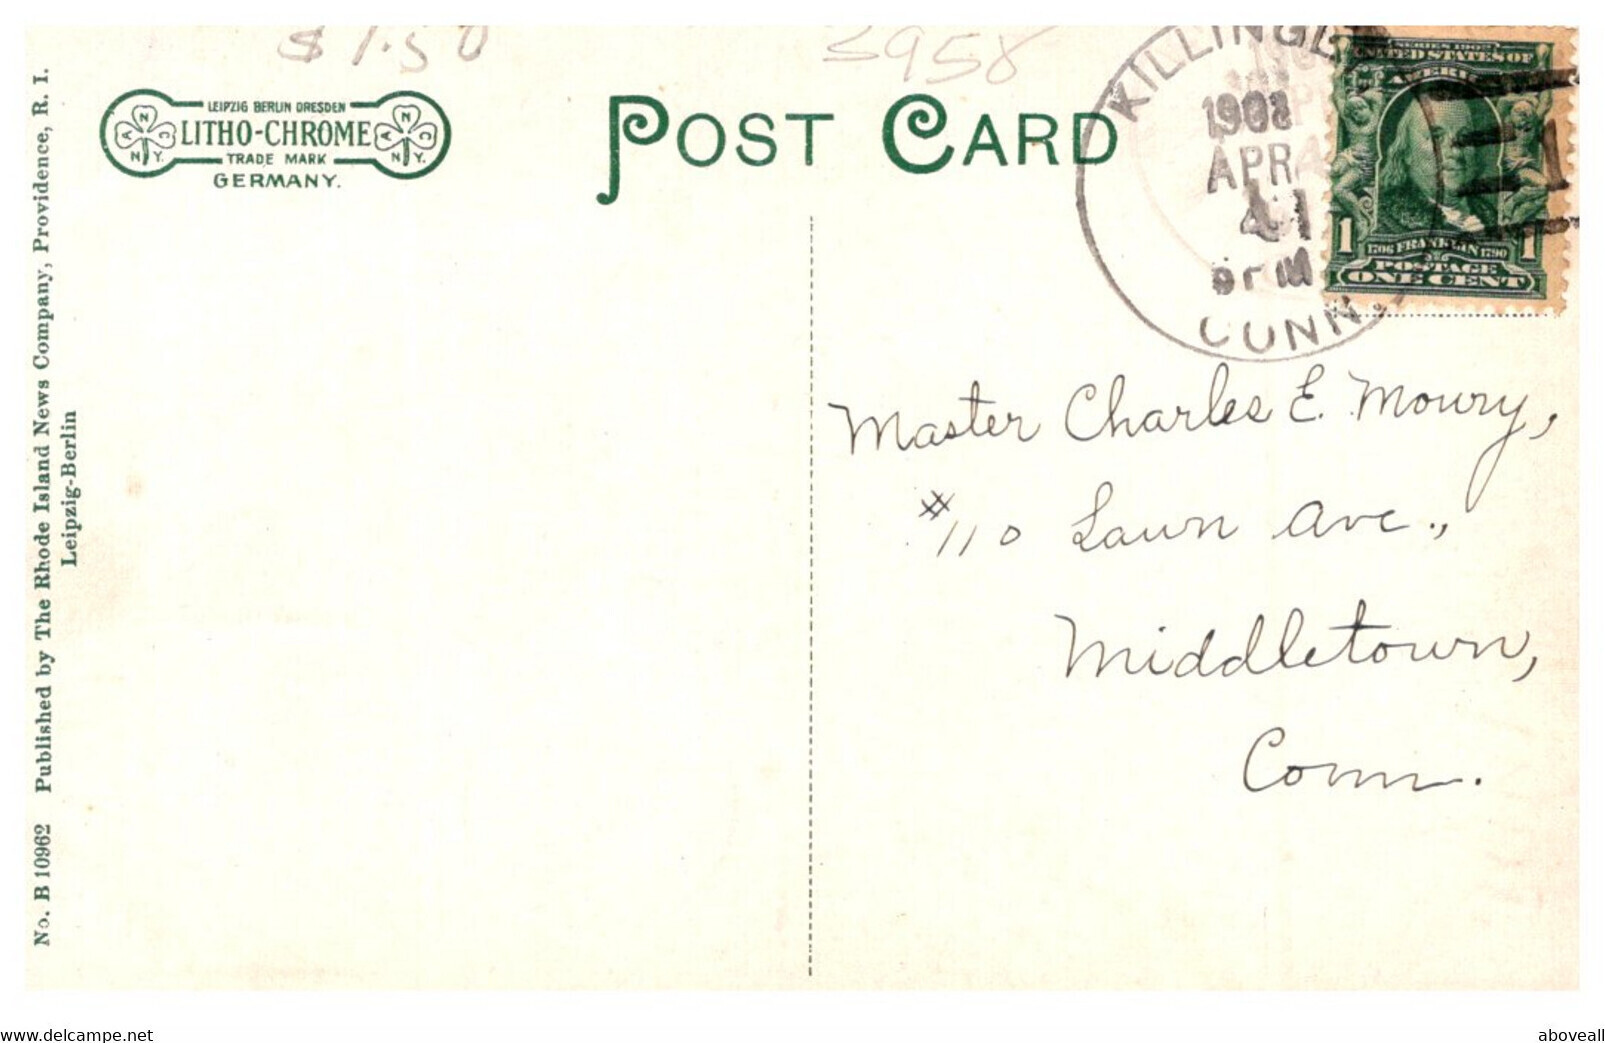 $1.50
S958
LEIPZIG BERLIN DRESDEN
LITHO-CHROME
TRADE MARK
GERMANY.
A N C N.Y.
A N C N.Y.
POST CARD
1908
APR
CONN.
SERIES 1902
UNITED STATES OF
1 1706 FRANKLIN 1790 1
POSTAGE
ONE CENT
Master Charles E. Mowry,
#110 Lawn Ave.,
Middletown,
Conn.
No. B 10962 Published by The Rhode Island News Company, Providence, R. I.
Leipzig-Berlin
www.delcampe.net
aboveall